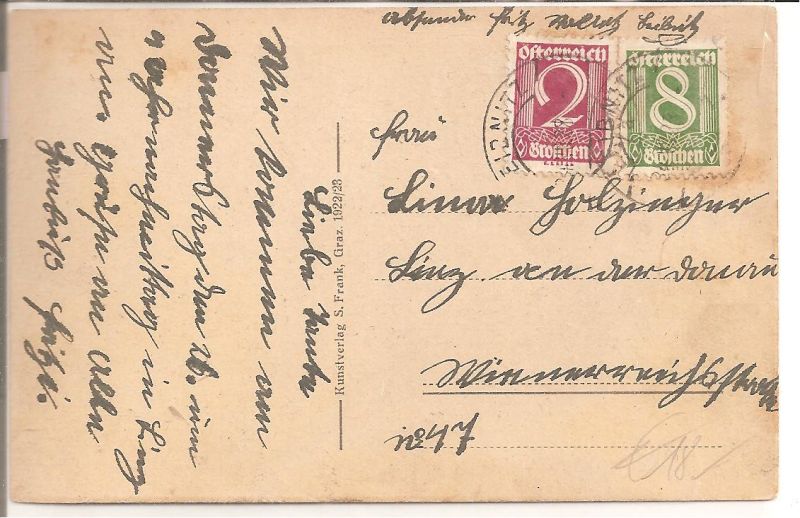 absender Fritz
Österreich
2
Groschen
Österreich
8
Groschen
Frau
Linna Holzinger
Linz an der Donau
Wienerreichsstraße
№ 47
Kunstverlag S. Frank, Graz. 1922/23
Liebe Tante
Wir kommen am
Donnerstag den 26. um
nachmittag in Linz
an. Grüße an alle
Fritzi.
€ 18